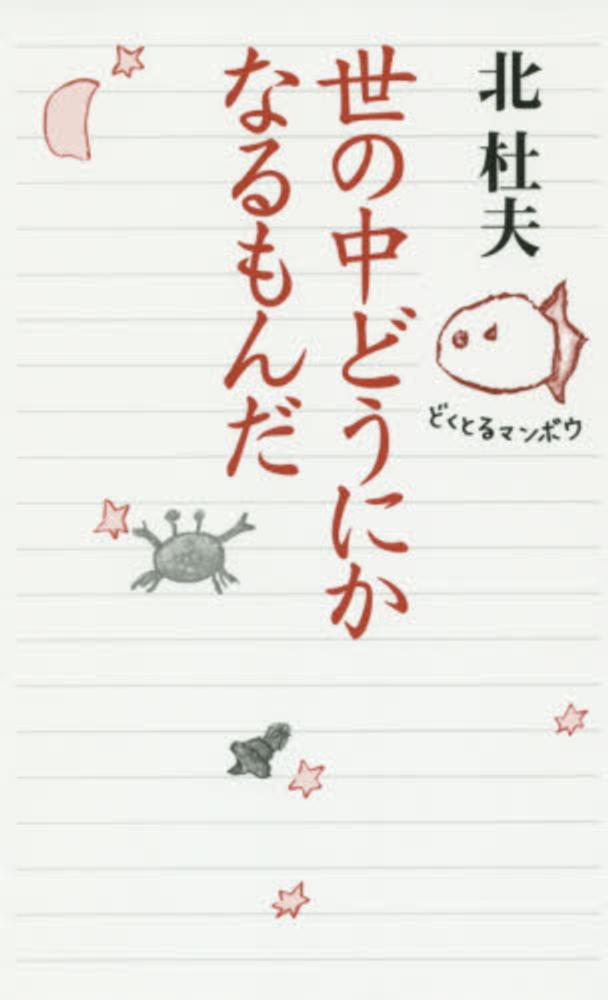 北 杜夫
どくとるマンボウ
世の中どうにか
なるもんだ